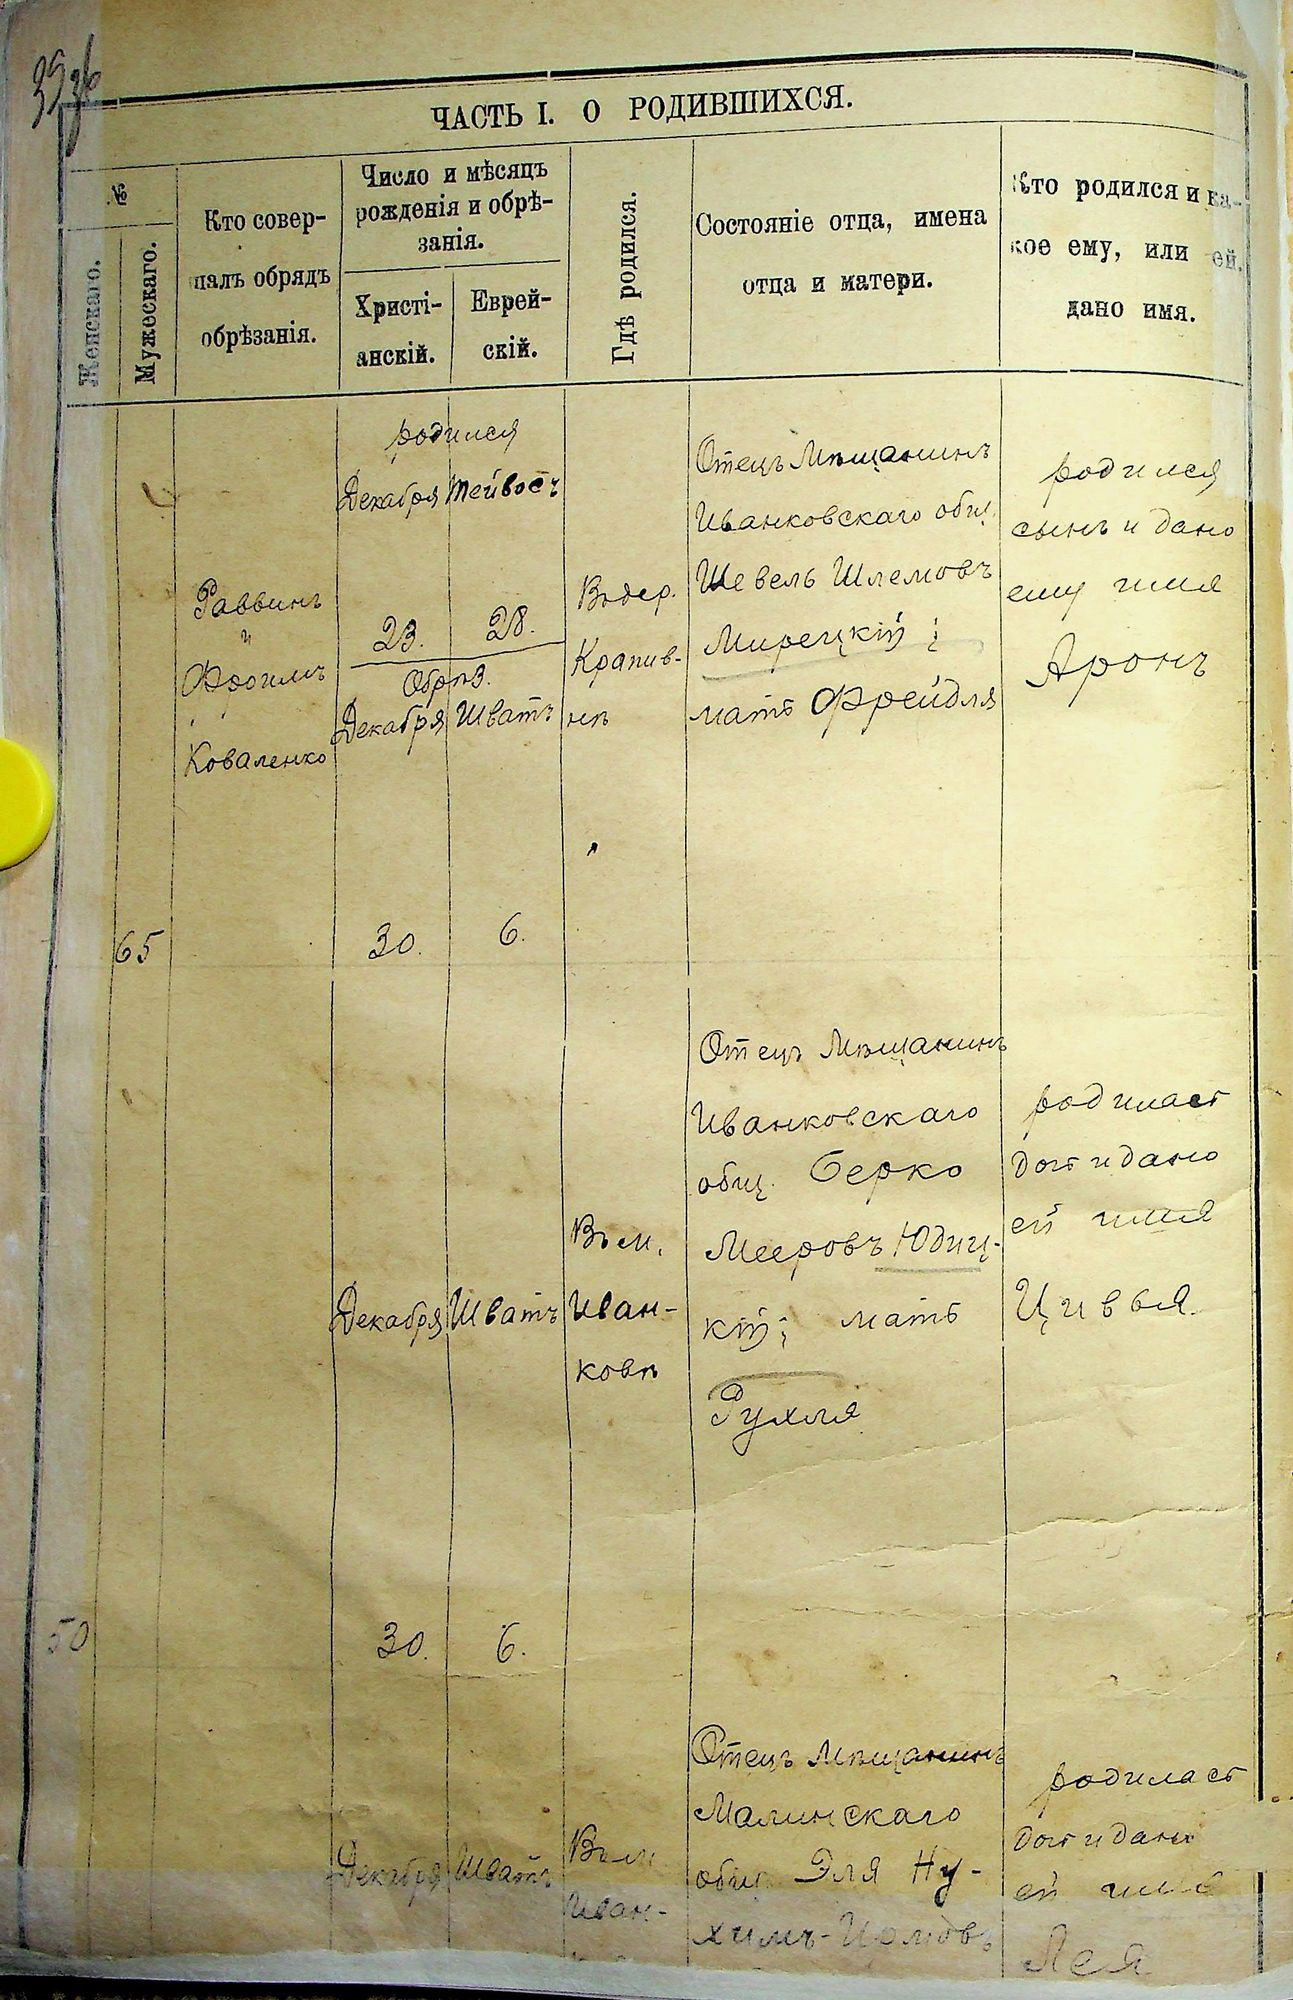 ЧАСТЬ I. О РОДИВШИХСЯ.
№
Женскаго.
Мужескаго.
Кто совер-
шалъ обрядъ
обрѣзанія.
Число и мѣсяцъ
рожденія и обрѣ-
занія.
Христі-
анскій.
Еврей-
скій.
Гдѣ родился.
Состояніе отца, имена
отца и матери.
Кто родился и ка-
кое ему, или ей,
дано имя.
65
Раввинъ
и
Коваленко
родился
Декабря Тейвосъ
23. 28.
Обрѣз.
Декабря Шватъ
30. 6.
Въ дер.
Крапив-
нѣ
Отецъ Мѣщанинъ
Иванковскаго общ.
Шевель Шлемовъ
Мирецкій;
мать Фрейдля
родился
сынъ и дано
ему имя
Аронъ
50
Декабря Шватъ
30. 6.
Въ м.
Иван-
ковѣ
Отецъ Мѣщанинъ
Иванковскаго
общ. Берко
Мееровъ Юдиц-
кій; мать
Рухля
родилась
дочь и дано
ей имя
Цивья.
Декабря Шватъ
Въ м
Иван-
Отецъ Мѣщанинъ
Малинскаго
общ. Эля Ну-
химъ-Иомовъ
родилась
дочь и дано
ей имя
Лея